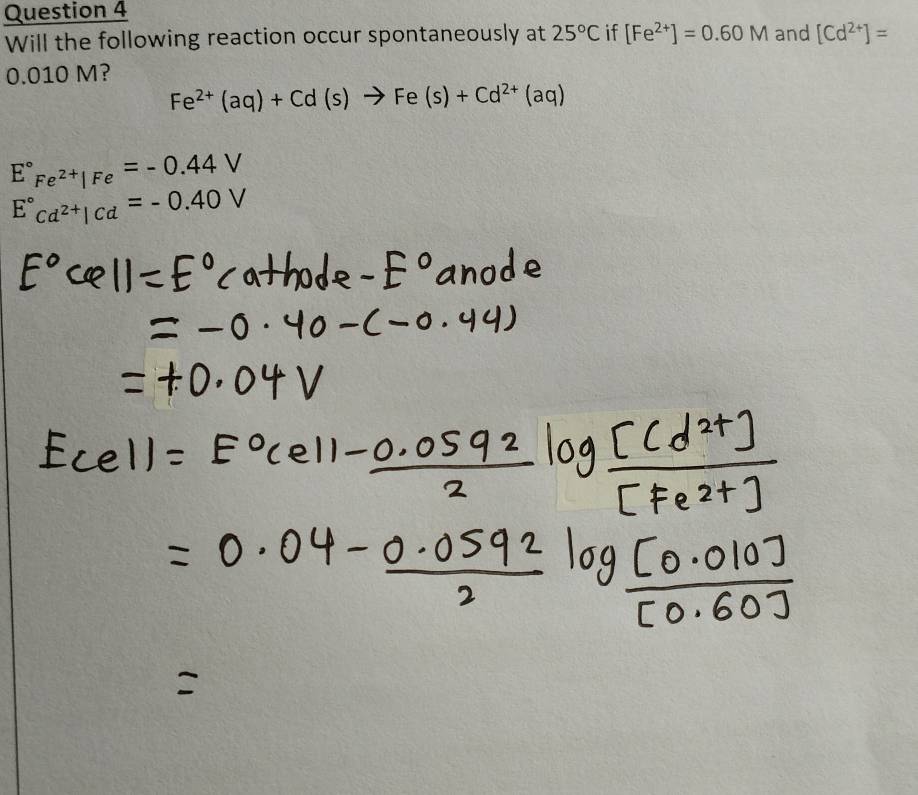 Question 4
Will the following reaction occur spontaneously at 25°C if [Fe²⁺] = 0.60 M and [Cd²⁺] =
0.010 M?
Fe²⁺ (aq) + Cd (s) → Fe (s) + Cd²⁺ (aq)
E°Fe²⁺| Fe = - 0.44 V
E°Cd²⁺| Cd = - 0.40 V
E°cell = E°cathode - E°anode
= -0.40 - (-0.44)
= +0.04 V
Ecell = E°cell - 0.0592/2 log [Cd²⁺]/[Fe²⁺]
= 0.04 - 0.0592/2 log [0.010]/[0.60]
=